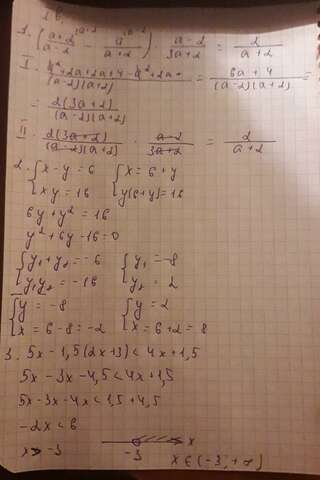 1. (a+2/a-2 - a/a+2) · a-2/3a+2 = 2/a+2
I. a²+2a+2a+4-a²+2a/(a-2)(a+2) = 6a+4/(a-2)(a+2) =
= 2(3a+2)/(a-2)(a+2)
II. 2(3a+2)/(a-2)(a+2) · a-2/3a+2 = 2/a+2
2. { x-y=6 { x=6+y
xy=16 y(6+y)=16
6y+y²=16
y²+6y-16=0
{ y₁+y₂=-6 { y₁=-8
y₁y₂=-16 y₂=2
{ y=-8 { y=2
x=6-8=-2 x=6+2=8
3. 5x-1,5(2x+3)<4x+1,5
5x-3x-4,5<4x+1,5
5x-3x-4x<1,5+4,5
-2x<6
x>-3 -3 x x∈(-3,+∞)